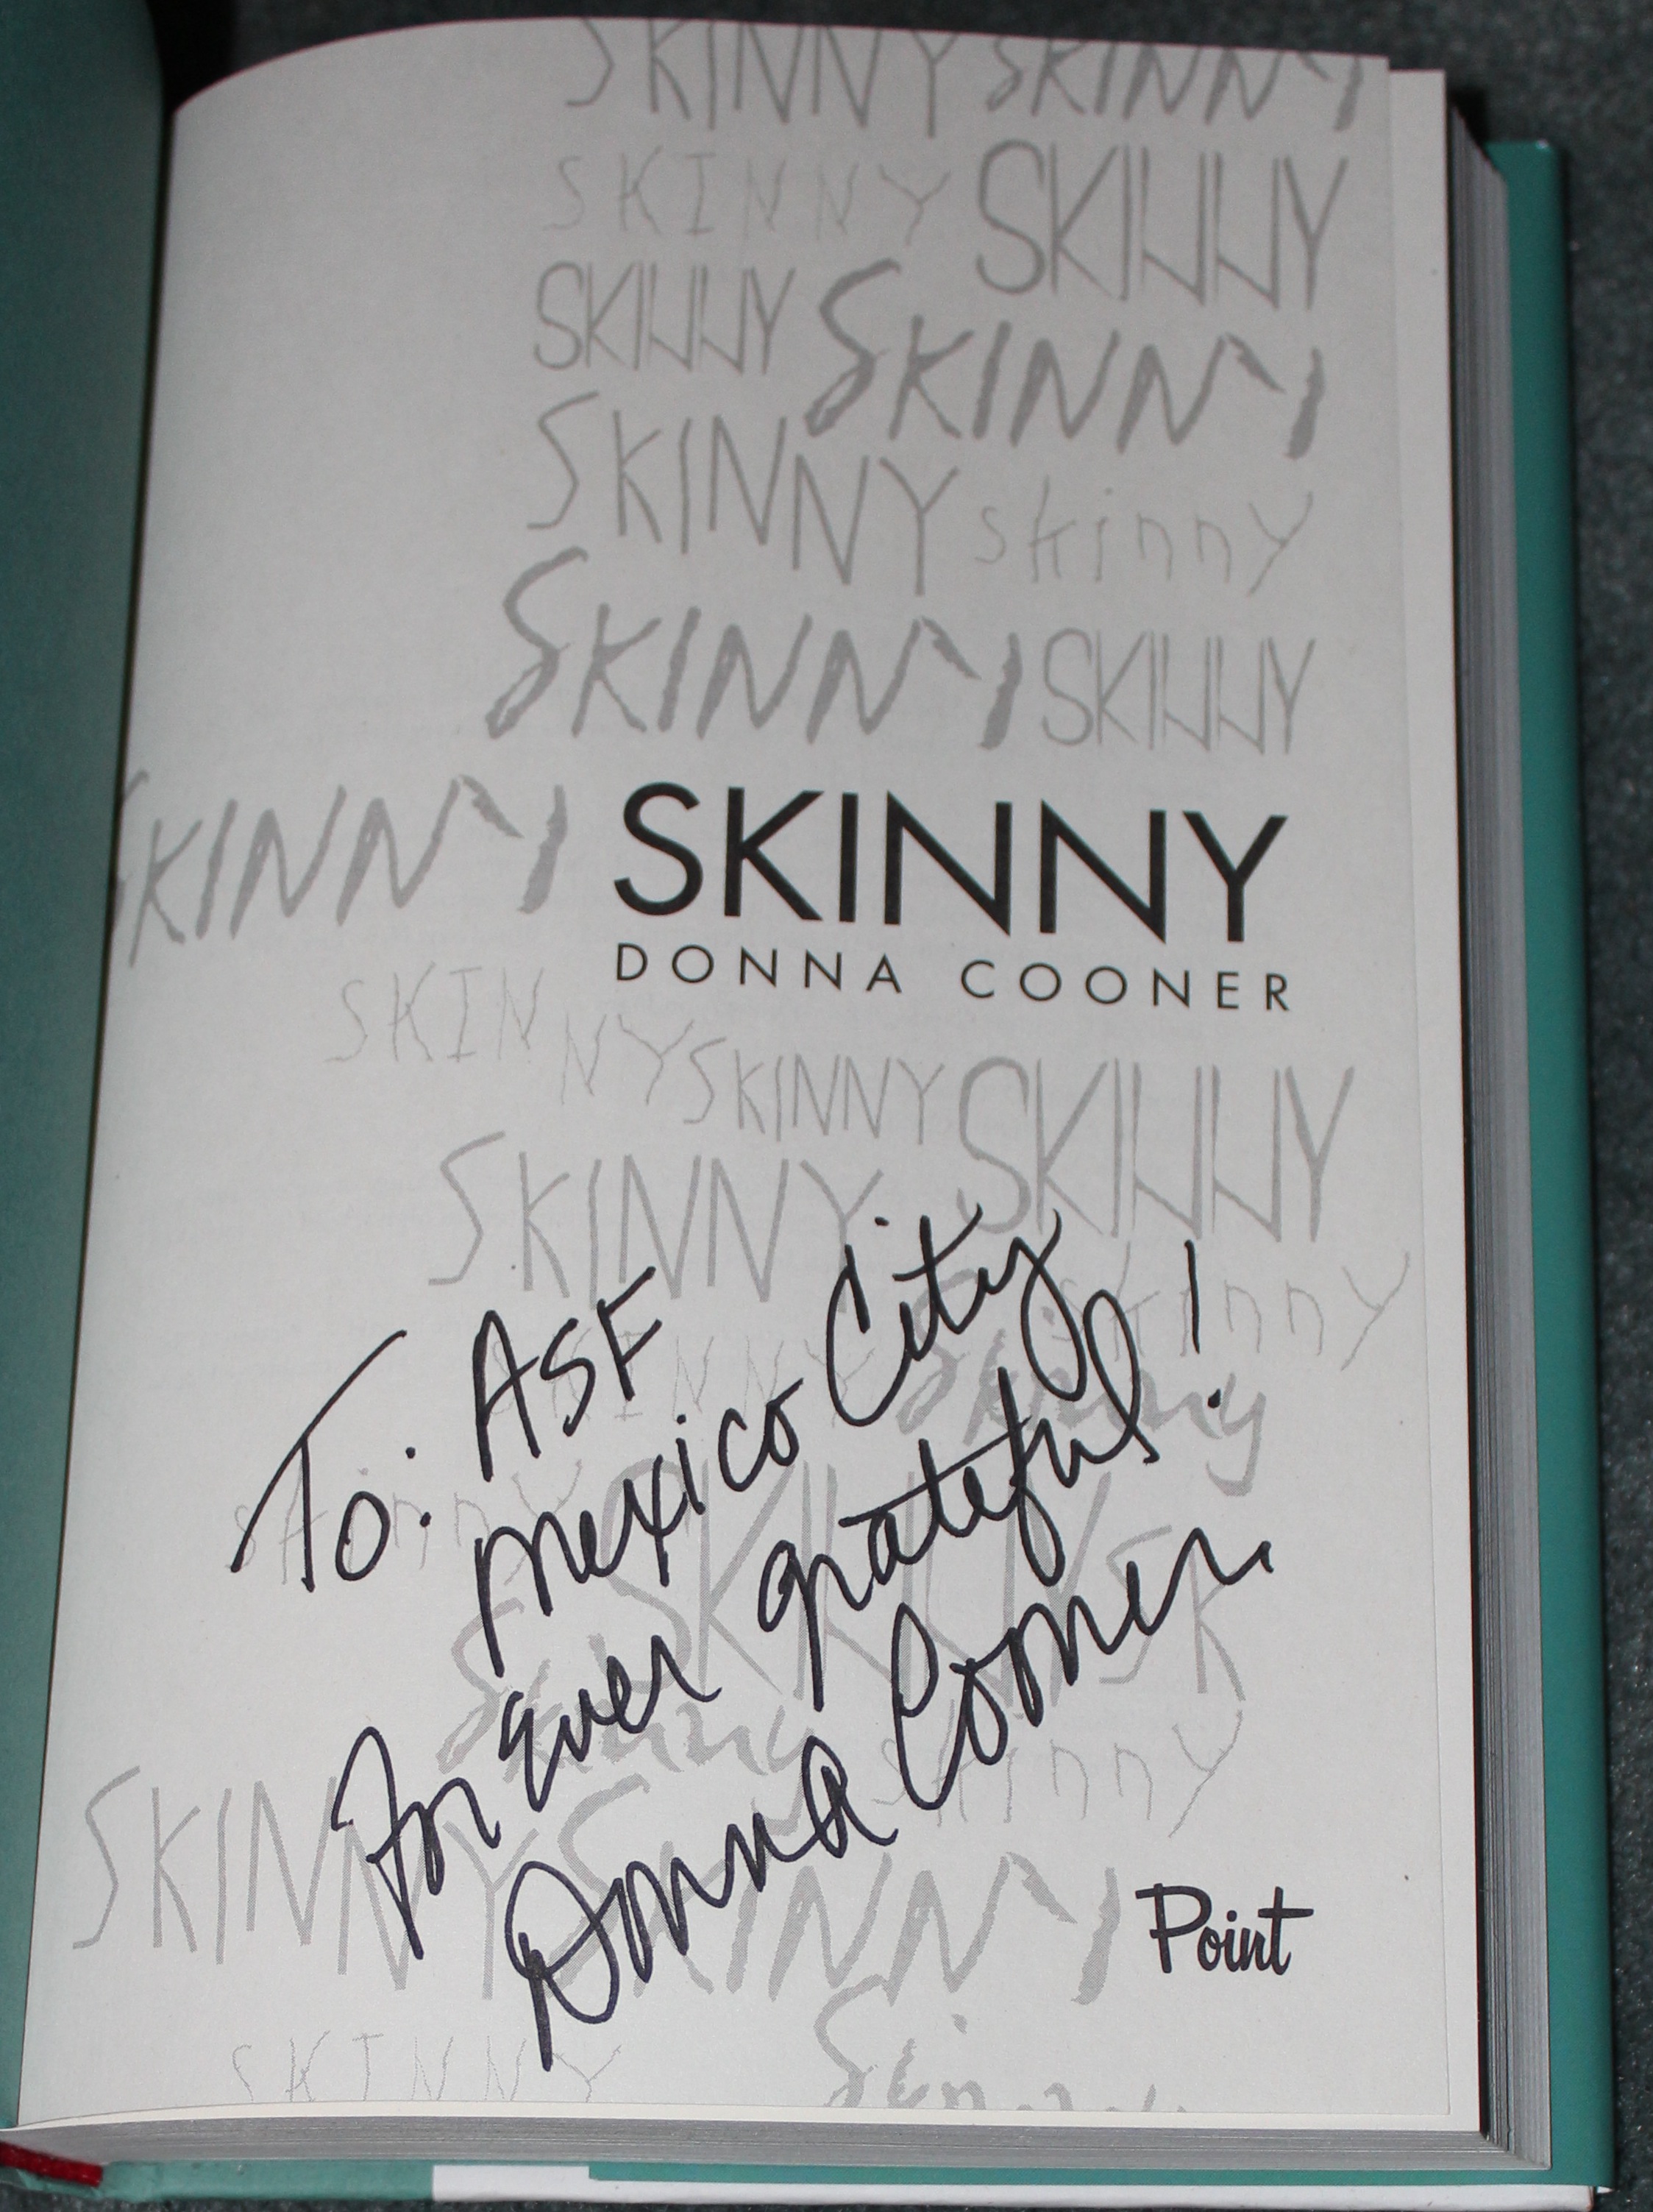 SKINNY SKINNY
SKINNY SKINNY
SKINNY SKINNY
SKINNY skinny
SKINNY SKINNY
SKINNY
SKINNY
DONNA COONER
SKINNY SKINNY SKINNY
SKINNY
skinny
SKINNY Skinny
skinny SKINNY SK
Skinny skinny
SKINNY SKINNY
SKINNY Skinny
To: ASF
Mexico City
For Ever grateful!
Donna Cooner
Point